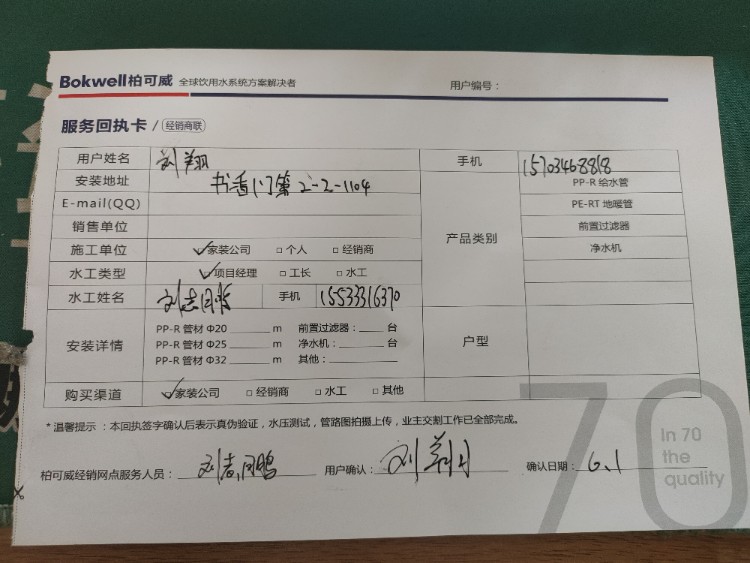 Bokwell柏可威 全球饮用水系统方案解决者 用户编号：
服务回执卡 / 经销商联
用户姓名 刘翔 手机 15703468818
安装地址 书香门第2-2-1104 产品类别 PP-R 给水管
E-mail(QQ) PE-RT 地暖管
销售单位 前置过滤器
施工单位 家装公司 个人 经销商 净水机
水工类型 项目经理 工长 水工
水工姓名 手机 15533316370
安装详情 PP-R 管材 Φ20 m 前置过滤器： 台 户型
PP-R 管材 Φ25 m 净水机： 台
PP-R 管材 Φ32 m 其他：
购买渠道 家装公司 经销商 水工 其他
*温馨提示：本回执签字确认后表示真伪验证，水压测试，管路图拍摄上传，业主交割工作已全部完成。
柏可威经销网点服务人员： 用户确认： 刘翔 确认日期： 6.1
70
In 70
the
quality